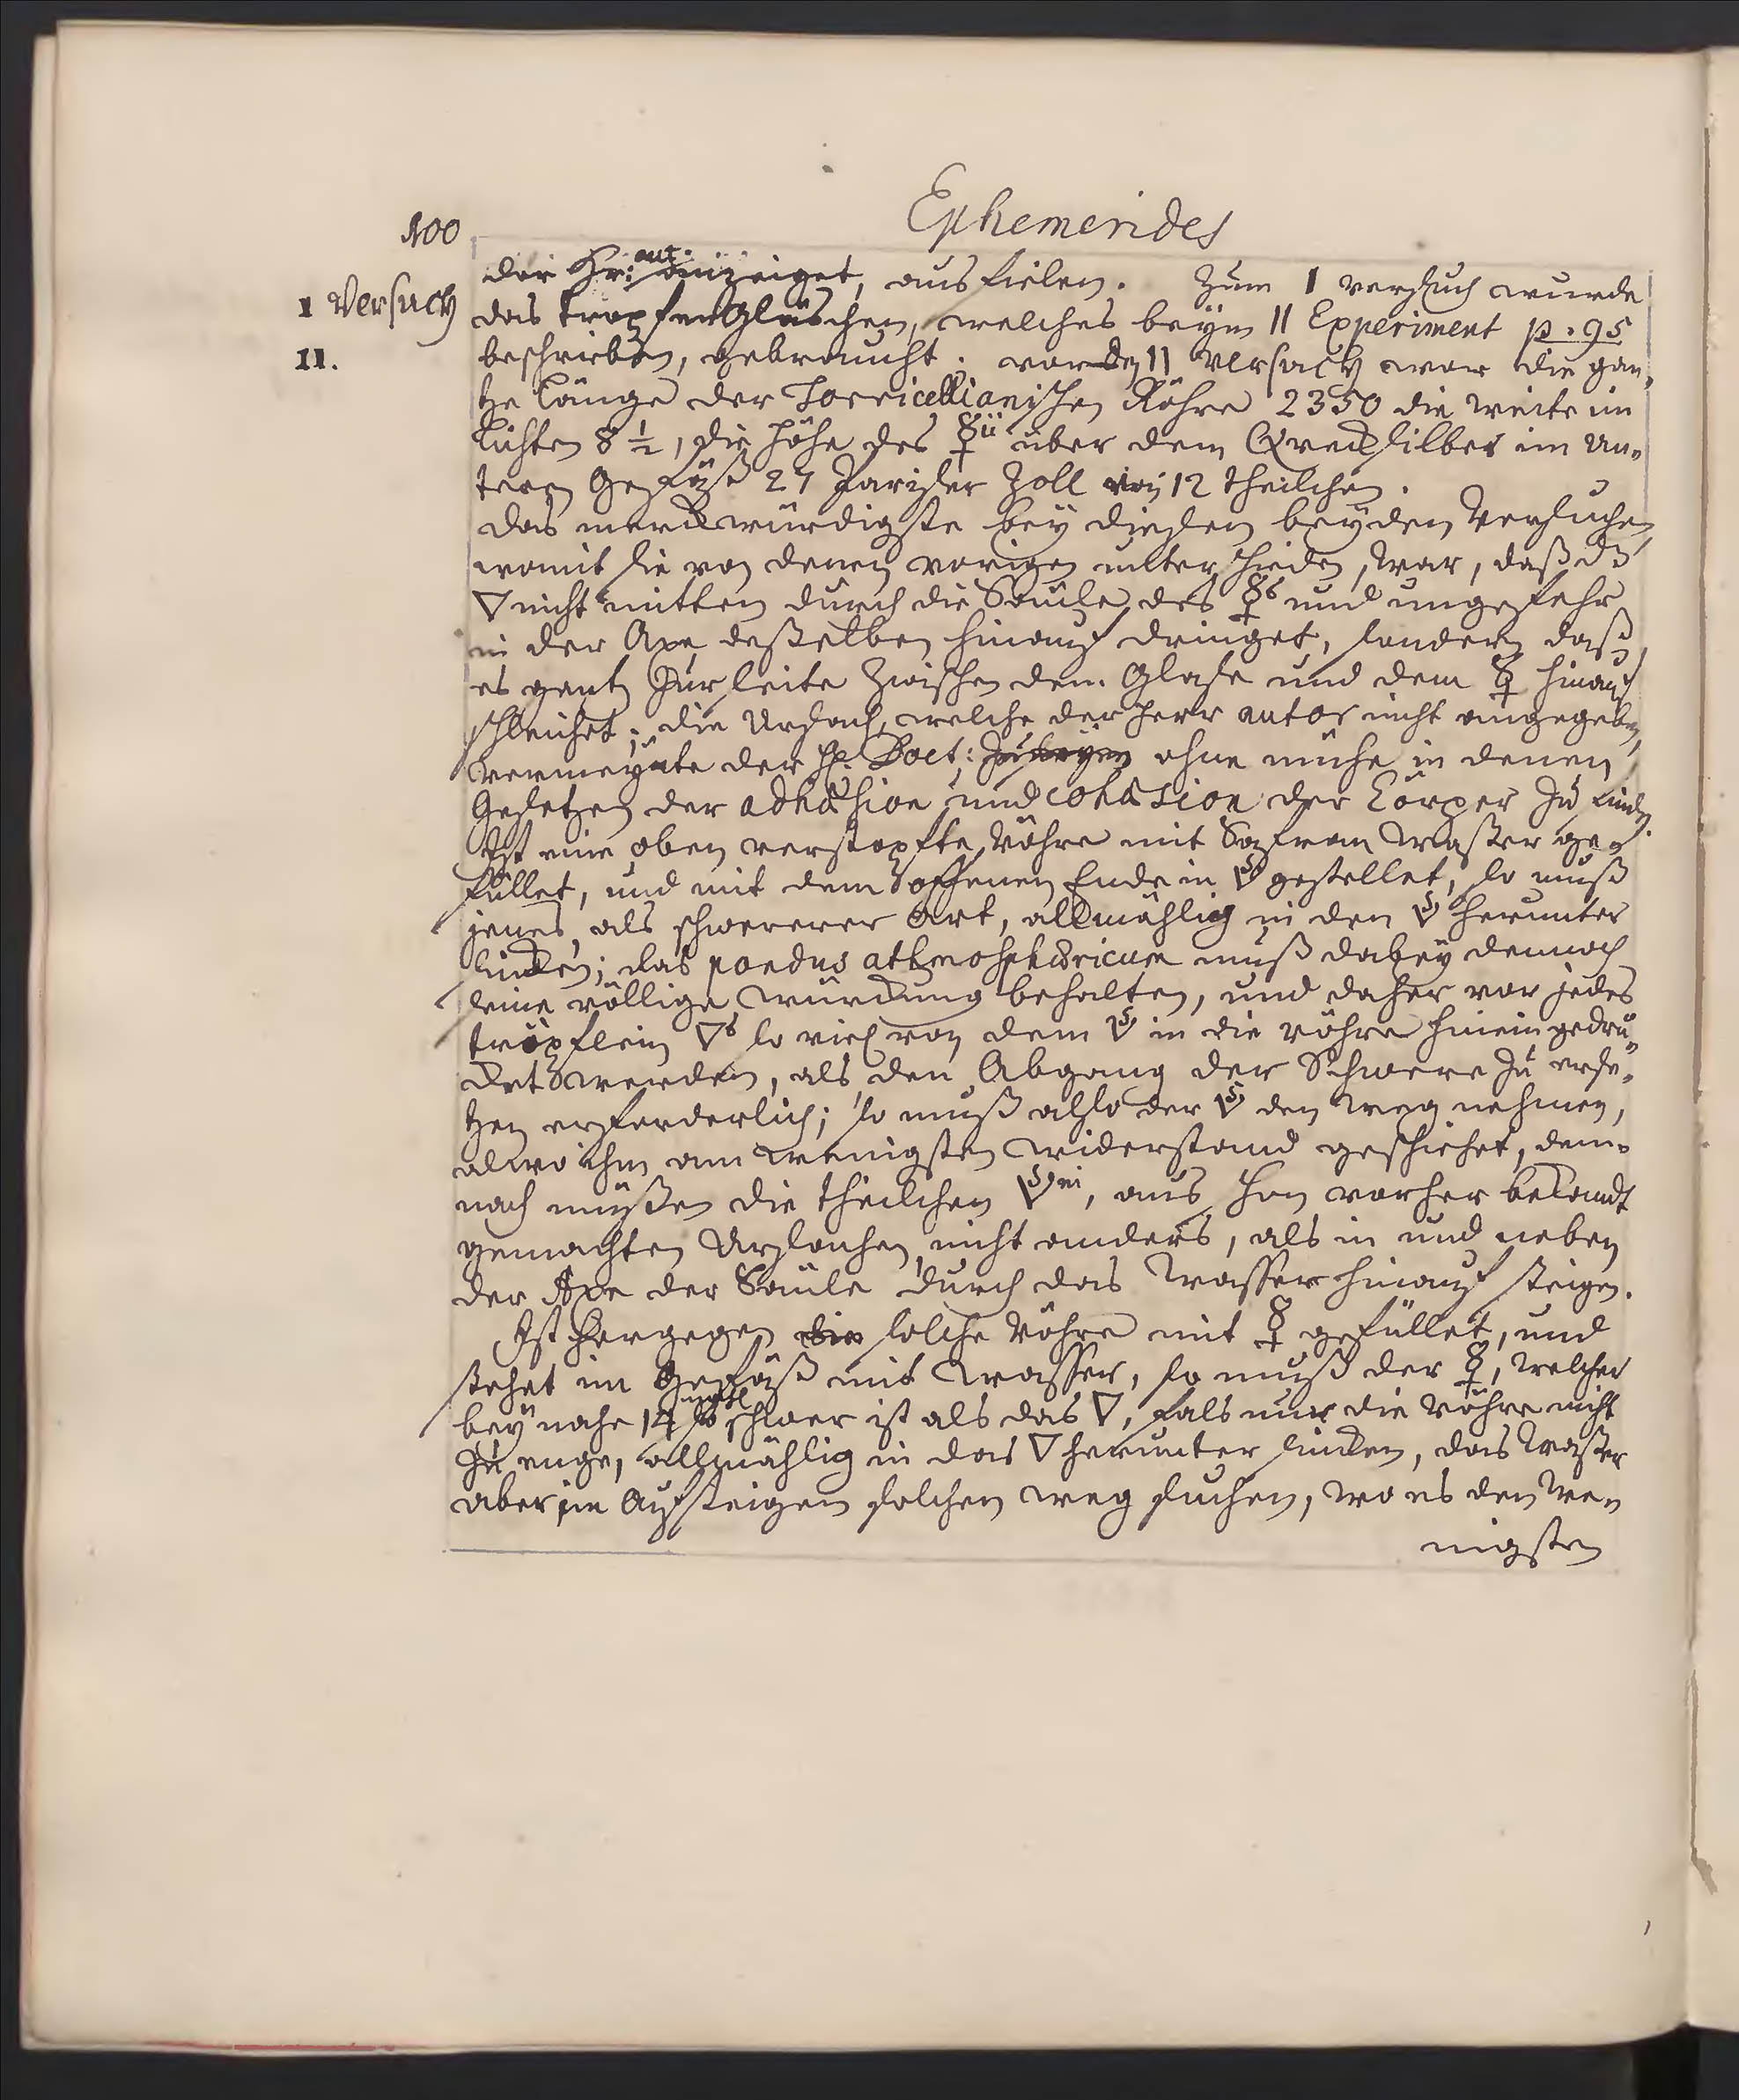 100
Ephemerides
der Hr: aut: anzeiget, ausfielen. Zum I versuch wurde
I Versuch
das tropfen Gläschen, welches beÿm II Experiment p. 95
II.
beschrieben, gebraucht. vor den II Versuch war die gan„
tze Länge der Torricellianischen Röhre 2350 die weite im
lichten 8 ½, die Höhe des ☿ii über dem Qvecksilber im un„
teren Gefäß 27 Pariser Zoll 12 theilchen.
das merckwürdigste beÿ diesen beÿden Versuchen
womit sie von denen vorigen unterschieden, war, daß dz
🜄 nicht mitten durch die Säule des ☿s und ungefehr
in der Axe deßelben hinauf dringet, sondern daß
es gantz zur seite Zwischen dem Glase und dem ☿ hinauf
schleichet; die Ursach, welche der Herr autor nicht angegeben,
vermeÿnte der H. Doct: ohne mühe in denen
Gesetzen der adhæsion und cohæsion der Cörper zu finden.
Ist eine oben verstopfte Röhre mit Safran Waßer ge„
füllet, und mit dem offenen Ende in gestellet, so muß
jenes, als schwererer Art, allmählig in den herunter
sincken; das pondus athmosphæricum muß dabeÿ dennoch
seine völlige würckung behalten, und daher vor jedes
tröpflein 🜄s so viel von dem in die röhre hineingedru„
cket werden, als den Abgang der Schwere zu erse„
tzen erforderlich; so muß also der den weg nehmen,
alwo ihm am wenigsten widerstand geschiehet, dem„
nach müßen die theilchen, aus schon vorher bekandt
gemachten Ursachen, nicht anders, als in und neben
der Axe der Säule durch das Wasser hinauf steigen.
Ist hergegen solche röhre mit ☿ gefüllet, und
stehet im Gefäß mit Wasser, so muß der ☿, welcher
beÿ nahe 14 mahl schwer ist als das 🜄, fals nur die röhre nicht
zu enge, allmählig in das 🜄 herunter sincken, das Waßer
aber im Aufsteigen solchen weg suchen, wo es den we„
nigsten